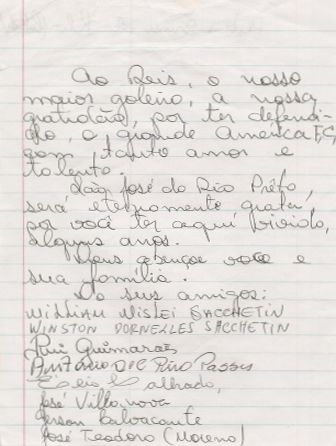 Ao Reis, o nosso
maior goleiro, a nossa
gratidão, por ter defendi-
do, o grande America F.C,
com tanto amor e
talento.
São José do Rio Prêto,
será eternamente grata,
por você ter aqui vivido,
alguns anos.
Deus abençoe você e
sua família.
Do seus amigos:
WILLIAM WISLEI SACCHETIN
WINSTON DORNELLES SACCHETIN
Rui Guimarães
Antônio
José Villanova
Gerson Cavalcante
José Teodoro (Moreno)